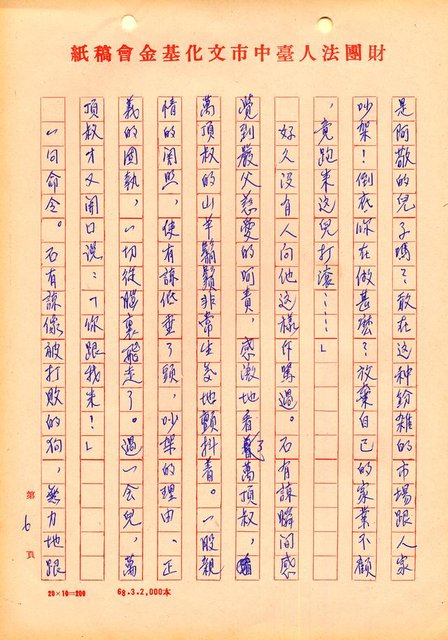 財團法人臺中市文化基金會稿紙
是阿敬的兒子嗎？敢在这种紛雜的市場跟人家
吵架！倒底你在做甚麼？放棄自己的家業不顧
，竟跑来这兒打滾……！」
好久没有人向他这樣斥罵過。石有諒瞬间感
覺到嚴父慈愛的呵責，感激地看了萬頂叔，
萬頂叔的山羊鬍鬚非常生氣地顫抖着。一股親
情的関照，使有諒低垂了頭，吵架的理由、正
義的固執，一切從腦裏飛走了。過一会兒，萬
頂叔才又開口说：「你跟我来！」
一句命令。石有諒像被打敗的狗，無力地跟
第 6 頁
20×10=200
68.3.2,000本